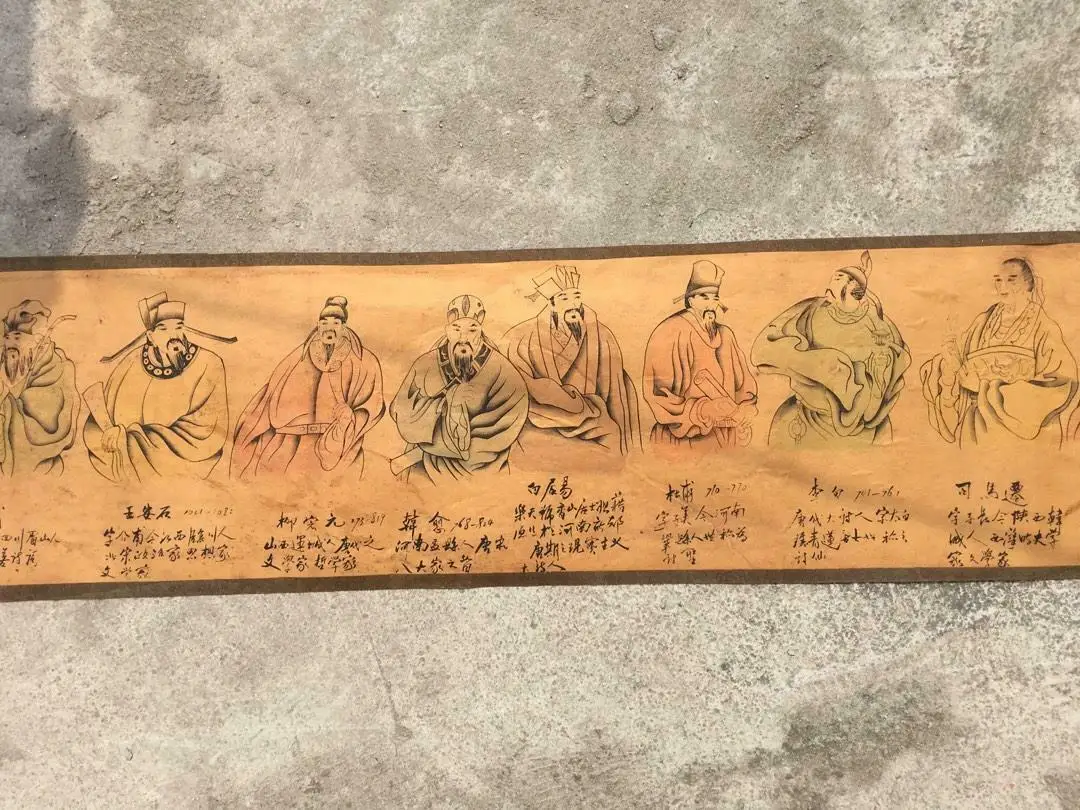 四川眉山人
王安石
字介甫今江西临川人
北宋政治家思想家
文学家
柳宗元 773-819
山西运城人唐代之
文学家哲学家
韓愈 768-824
河南孟縣人唐宋
八大家之首
白居易
樂天號香山居士祖籍
河南新郑
唐期之现实主义
大诗人
杜甫 710-770
字子美今河南
鞏縣人世称为
詩聖
李白 701-761
唐代大诗人字太白
號青莲
詩仙
司馬遷
字子長今陝西韓
城人西漢時大学
家文學家